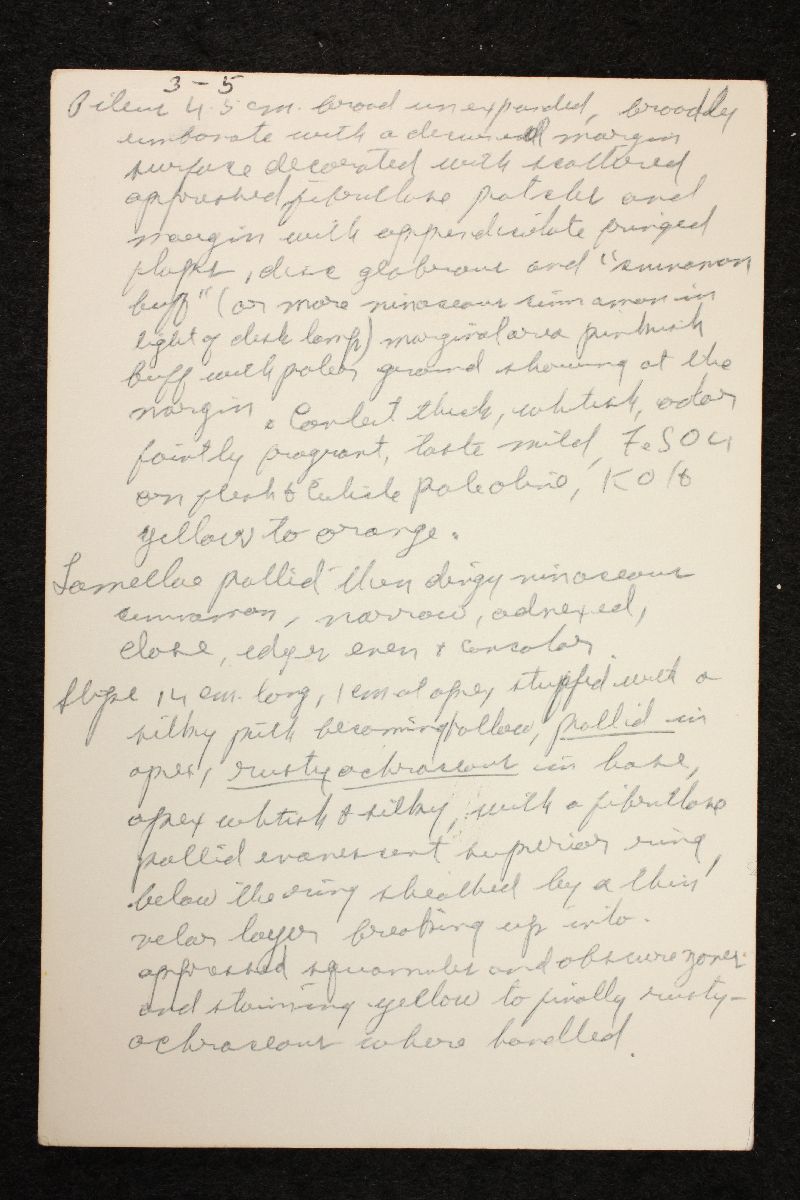 3 - 5
Pileus 4.5 cm. broad unexpanded, broadly
umbonate with a decurved margin
surface decorated with scattered
appressed fibrillose patches and
margin with appendiculate fringed
, disc glabrous and "cinnamon
buff" (or more vinaceous cinnamon in
light of desk lamp) marginal area pinkish
buff with paler ground showing at the
margin. Context thick, whitish, odor
faintly fragrant, taste mild, FeSO4
on flesh & cuticle pale olive, KOH
yellow to orange.
Lamellae pallid then dingy vinaceous
cinnamon, narrow, adnexed,
close, edges even & concolor
Stipe 14 cm. long, 1 cm at apex stuffed with a
silky pith becoming hollow, pallid in
apex, rusty ochraceous in base,
apex whitish & silky, with a fibrillose
pallid evanescent superior ring,
below the ring sheathed by a thin
velar layer breaking up into
appressed squamules and obscure zones
and staining yellow to finally rusty-
ochraceous where handled.